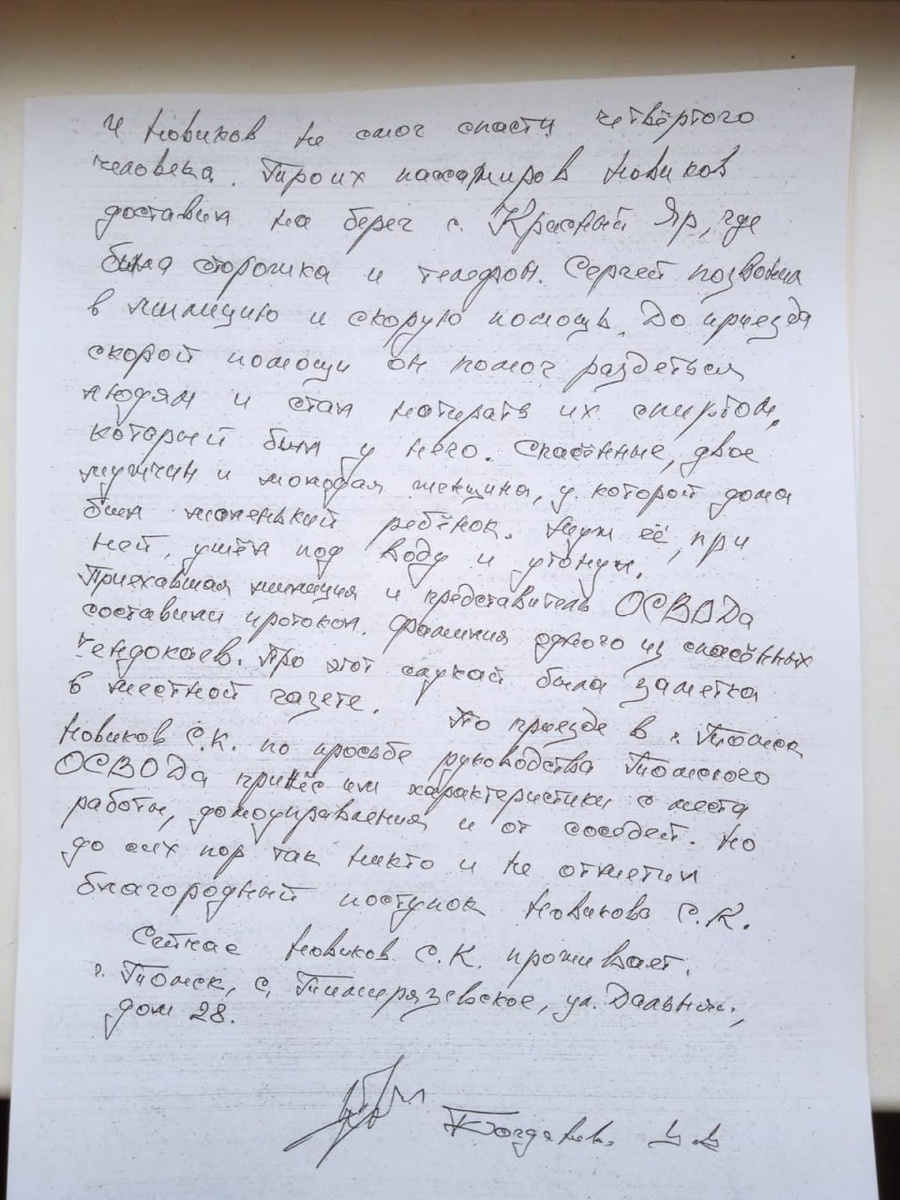 И Новиков не смог спасти четвёртого
человека. Троих пассажиров Новиков
доставил на берег с. Красный Яр, где
была сторожка и телефон. Сергей позвонил
в милицию и скорую помощь. До приезда
скорой помощи он помог раздеться
людям и стал натирать их спиртом,
который был у него. Спасённые, двое
мужчин и молодая женщина, у которой дома
был маленький ребёнок. Муж её, при
ней, ушёл под воду и утонул.
Приехавшая милиция и представитель ОСВОДа
составили протокол. Фамилия одного из спасённых
Чендокаев. Про этот случай была заметка
в местной газете.
По приезде в г. Томск
Новиков С.К. по просьбе руководства Томского
ОСВОДа принёс им характеристики с места
работы, домоуправления и от соседей. Но
до сих пор так никто и не отметил
благородный поступок Новикова С.К.
Сейчас Новиков С.К. проживает,
г. Томск, с. Тимирязевское, ул. Дальняя,
дом 28.